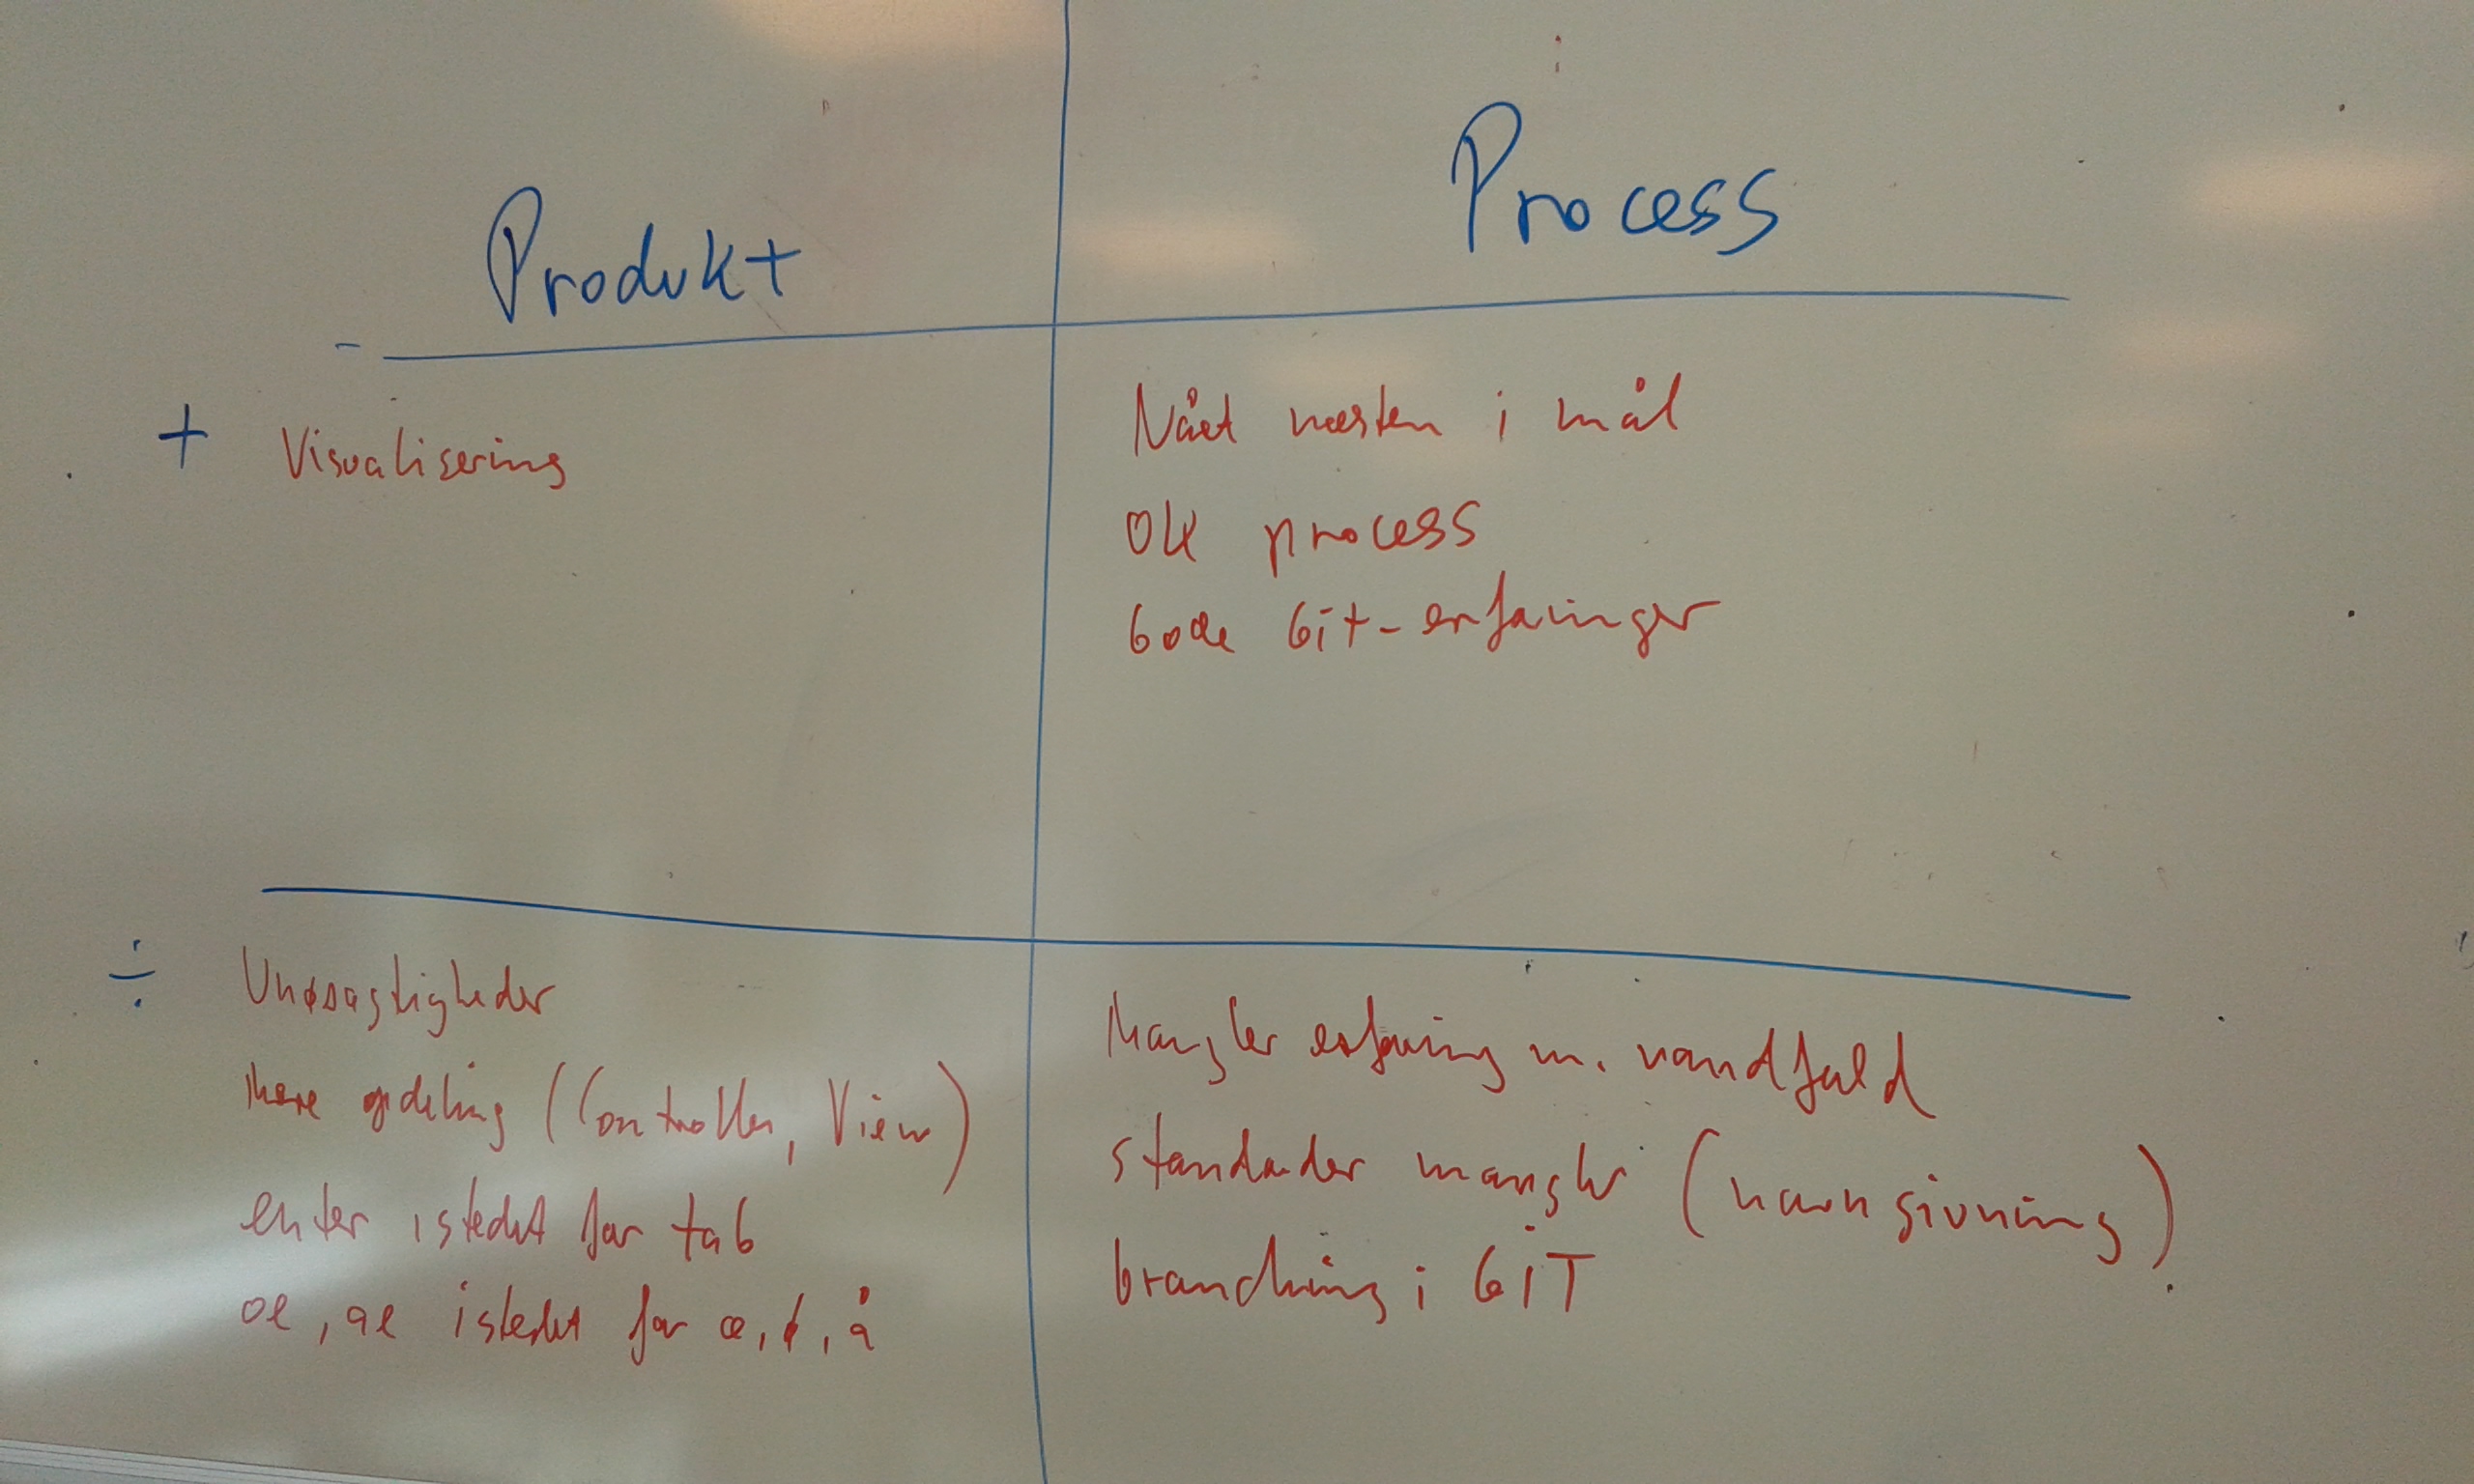 Produkt
Process
+ Visualisering
Nået næsten i mål
OK process
Gode Git-erfaringer
÷ Unøjagtigheder
Mere opdeling (Controller, View)
enter istedet for tab
oe, ae istedet for æ, ø, å
Mangler erfaring m. vandfald
standarder mangler (navngivning)
branching i GIT